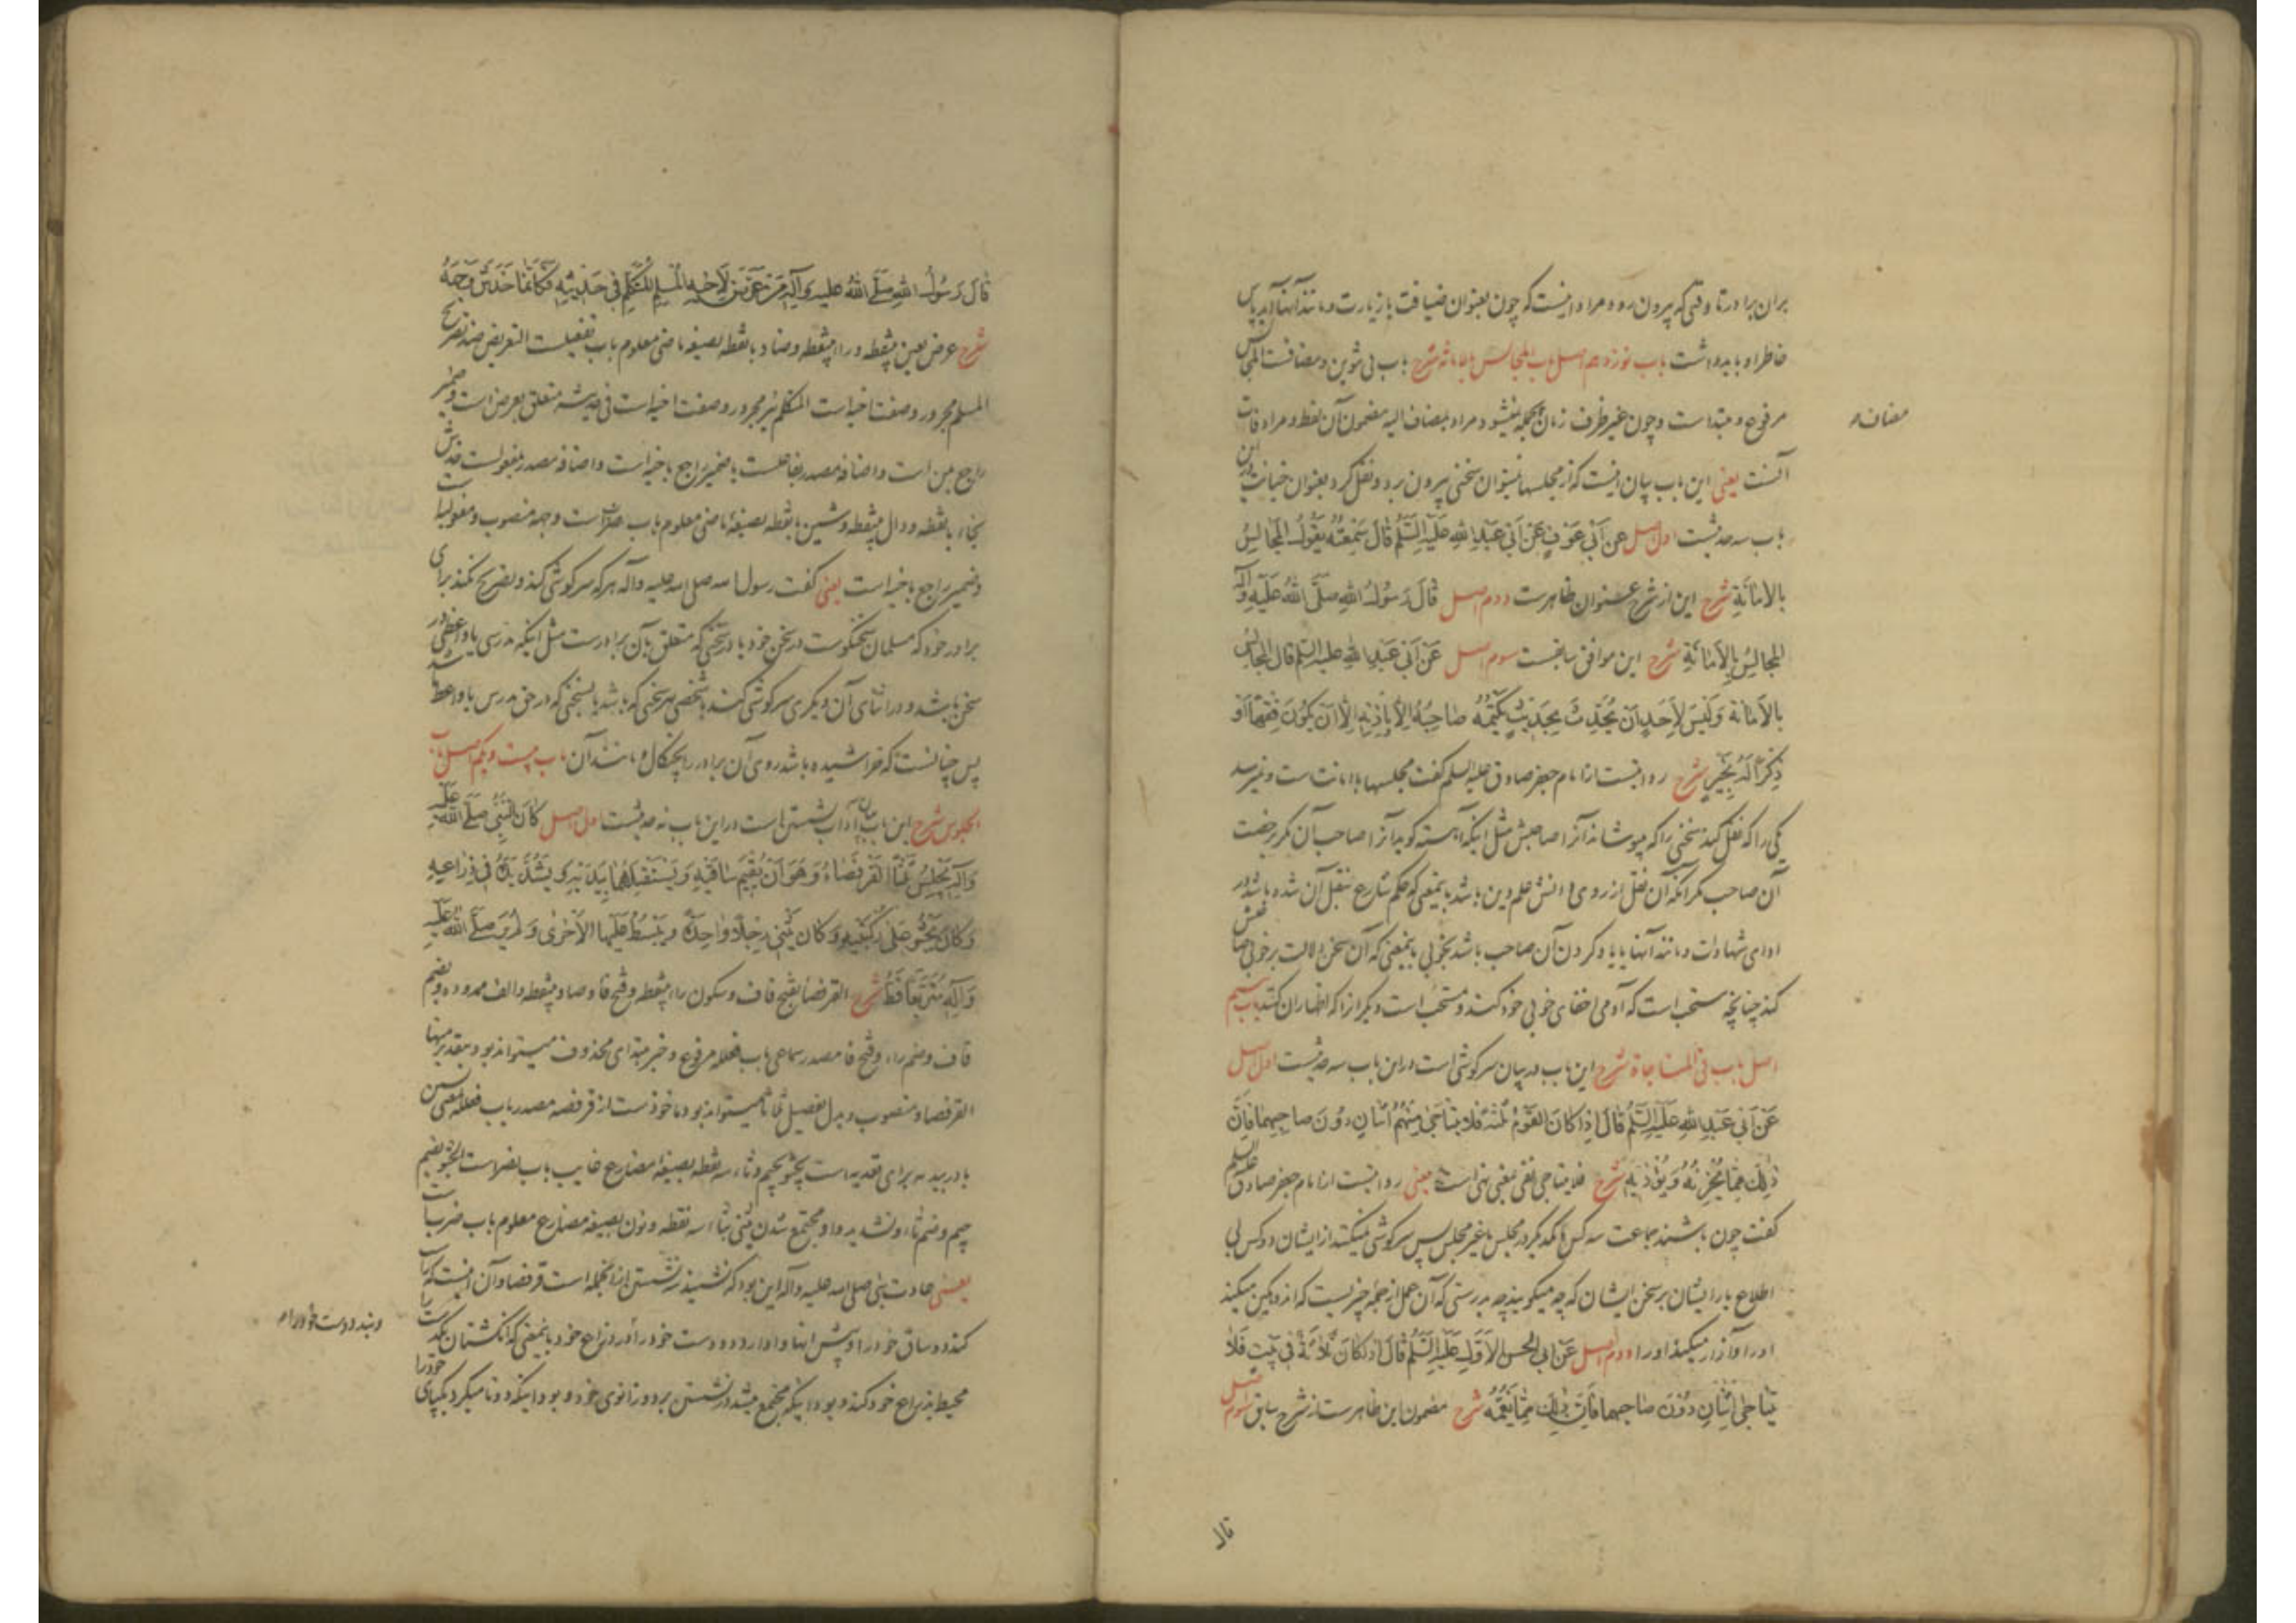 بران برادر تا وقتی که بیرون رود و مراد اینست که چون بعنوان ضیافت یا زیارت و مانند آنها آمد پاس
خاطر او باید داشت باب نوزدهم اصل باب المجالس بالامانة شرح باب بی تنوین و مضافست المجالس
مرفوع و مبتداست و چون غیر ظرف زمان بجمله نمیشود مراد بمضاف الیه مضمون آن لفظ و مراد
مضاف
آنست یعنی این باب بیان اینست که از مجلسها نمیتوان سخنی بیرون برد و نقل کرد بعنوان خیانت درین
باب سه حدیثست اول اصل عن ابی عوف عن ابی عبد الله علیه السلم قال سمعته یقول المجالس
بالامانة شرح این از شرح عنوان ظاهرست دوم اصل قال رسول الله صلی الله علیه و آله
المجالس بالامانة شرح این موافق سابقست سوم اصل عن ابی عبد الله علیه السلم قال المجالس
بالامانة و لیس لاحد ان یحدث بحدیث یکتمه صاحبه الا باذنه الا ان یکون فقها او
ذکرا له بخیر شرح روایتست از امام جعفر صادق علیه السلم گفت مجلسها با امانت است و نمیرسد
یکی را که نقل کند سخنی را که میپوشاند آنرا صاحبش مثل اینکه آهسته گوید آنرا صاحب آن مگر برخصت
آن صاحب مگر آنکه آن نقل از روی دانش علم دین باشد باینمعنی که حکم شارع بنقل آن شده باشد در
ادای شهادات و مانند آنها یا یاد کردن آن صاحب باشد بخوبی باینمعنی که آن سخن دلالت بر خوبی صاحبش
کند چنانچه مستحب است که آدمی اخفای خوبی خود کند و مستحب است دیگرانرا که اظهار آن کنند باب بیستم
اصل باب فی المناجاة شرح این باب در بیان سرگوشی است درین باب سه حدیثست اول اصل
عن ابی عبد الله علیه السلم قال اذا کان القوم ثلثة فلا یتناجی منهم اثنان دون صاحبهما فان
ذلک مما یحزنه و یؤذیه شرح فلا یتناجی نفی بمعنی نهی است یعنی روایتست از امام جعفر صادق علیه السلم
گفت چون باشند جماعت سه کس با همدیگر در مجلس یا غیر مجلس پس سرگوشی نمیکنند از ایشان دو کس بی
اطلاع یار ایشان بر سخن ایشان که چه میگویند چه بدرستی که آن عمل از جمله چیزیست که اندوهگین میکند
او را و آزار میکند او را دوم اصل عن ابی الحسن الاول علیه السلم قال اذا کان ثلاثة فی بیت فلا
یتناجی اثنان دون صاحبهما فان ذلک مما یغمه شرح مضمون این ظاهرست از شرح سابق سوم اصل
قال
قال رسول الله صلی الله علیه و آله من عرض لاخیه المسلم المتکلم فی حدیثه فکانما خدش وجهه
شرح عرض بعین بینقطه و راء بینقطه و ضاد با نقطه بصیغه ماضی معلوم باب تفعیلست التعریض ضد تصریح
المسلم مجرور و صفت اخیه است المتکلم نیز مجرور و صفت اخیه است فی حدیثه متعلق بعرض است و ضمیر
راجع بمن است و اضافه مصدر بفاعلست یا ضمیر راجع باخیه است و اضافه مصدر بمفعولست خدش
بخاء با نقطه و دال بینقطه و شین با نقطه بصیغه ماضی معلوم باب ضربست وجهه منصوب و مفعولست
و ضمیر راجع باخیه است یعنی گفت رسول الله صلی الله علیه و آله هر که سرگوشی کند و تصریح نکند برای
برادر خود که مسلمان سخنگوست در سخن خود یا در سخنی که متعلق بآن برادرست مثل اینکه مدرسی یا واعظی در
سخن باشد و در اثنای آن دیگری سرگوشی کند با شخصی هر سخنی که باشد یا سخنی که در حق مدرس یا واعظ باشد
پس چنانست که خراشیده باشد روی آن برادر را بچنگال و مانند آن باب بیست و یکم اصل باب
الجلوس شرح این باب بیان آداب نشستن است درین باب نه حدیثست اول اصل کان النبی صلی الله علیه
و آله یجلس ثلثا القرفصاء و هو ان یقیم ساقیه و یستقبلهما بیدیه و یشد یده فی ذراعیه
و کان یجثو علی رکبتیه و کان یثنی رجلا واحدة و یبسط علیها الاخری و لم یر صلی الله علیه
و آله متربعا قط شرح القرفصا بفتح قاف و سکون راء بینقطه و فتح فا و صاد بینقطه و الف ممدوده و بضم
قاف و ضم راء و فتح فا مصدر سماعی باب فعلله مرفوع و خبر مبتدای محذوف میتواند بود بتقدیر منها
القرفصاء و منصوب و بدل تفصیل ثلثا میتواند بود ماخوذست از قرفصه مصدر باب فعلله بمعنی بستن
با در بیدیه برای تعدیه است یجثو بجیم و ثاء سه نقطه بصیغه مضارع غایب باب نصرست الجثو بضم
جیم و ضم ثاء و تشدید واو مجتمع شدن یثنی بثاء سه نقطه و نون بصیغه مضارع معلوم باب ضربست
یعنی عادت نبی صلی الله علیه و آله این بود که نشیند سه نشستن از انجمله است قرفصا و آن اینست که راست
کند دو ساق خود را و پیش آنها وا دارد دو دست خود را
و بندد دست خود را
در ذراع خود باینمعنی که انگشتان یکدست را
محیط بذراع خود کند و بود اینکه مجتمع میشد در نشستن بر دو زانوی خود و بود اینکه دوتا میکرد یکپای خود را